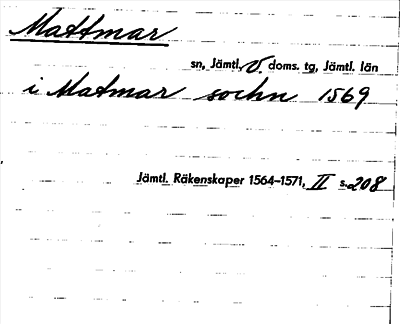 Mattmar
sn, Jämtl. V. doms. tg, Jämtl. län
i Matmar sochn 1569
Jämtl. Räkenskaper 1564–1571, II s. 208